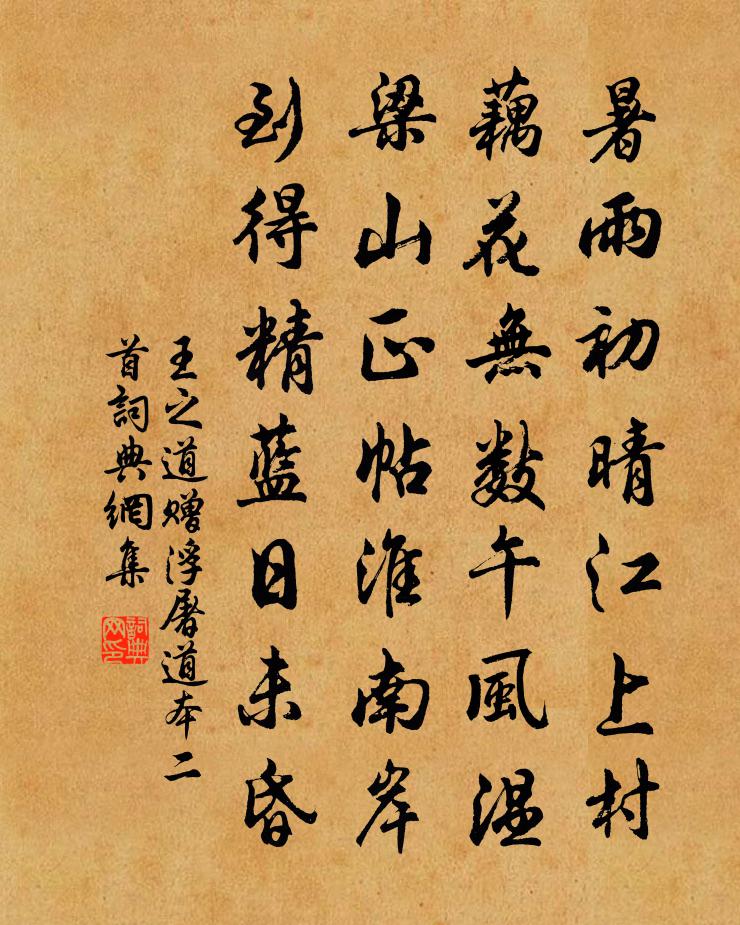 暑雨初晴江上村
藕花無數午風温
梁山正帖淮南岸
到得精藍日未昏
王之道贈浮屠道本二
首詞典網集
詞典网印